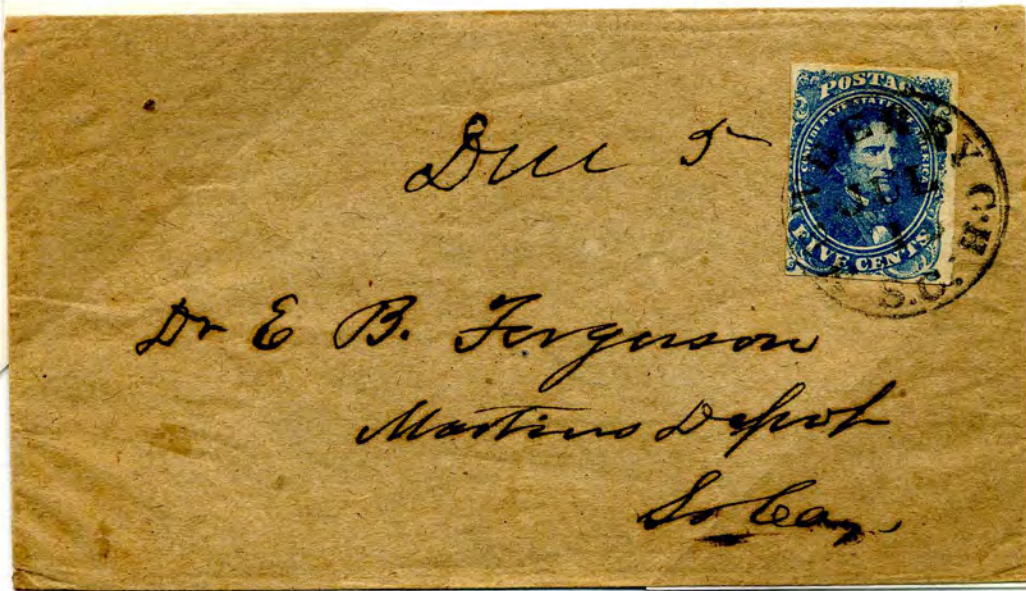 POSTAGE
CONFEDERATE STATES AMERICA
FIVE CENTS
BERRY C.H.
JUL
S.C.
Due 5
Dr E B. Ferguson
Martins Depot
So Ca